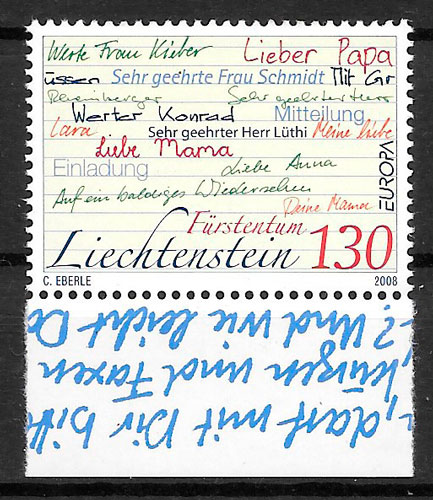 Werte Frau Kieber
Lieber Papa
üssen Sehr geehrte Frau Schmidt Mit Gr
Rheinberger Sehr geehrter Herr
Werter Konrad Mitteilung
Lara Sehr geehrter Herr Lüthi Meine liebe
Liebe Mama
Einladung Liebe Anna
Auf ein baldiges Wiedersehen
Deine Mama
EUROPA
Fürstentum
Liechtenstein 130
C. EBERLE 2008
? Und wie leicht Do
, kürzen und Faxen
, darf mit Dir bitt